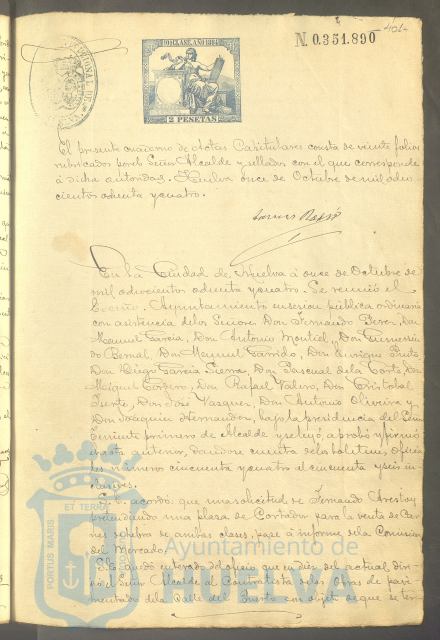 N. 0.351.890
401
DIOCLASE. AÑO 1884
2 PESETAS
El presente cuaderno de Actas Capitulares consta de veinte folios
rubricados por el Señor Alcalde y sellados con el que corresponde
á dicha autoridad. Huelva once de Octubre de mil ocho
cientos ochenta y cuatro.
En la Ciudad de Huelva á once de Octubre de
mil ochocientos ochenta y cuatro. Se reunió el
Excmo. Ayuntamiento en sesion pública ordinaria
con asistencia de los Señores Don Fernando Perez, Don
Manuel Garcia, Don Antonio Montiel, Don
do Bernal, Don Manuel Garrido, Don Enrique
Don Diego Garcia Sierra, Don Pascual de la Corte, Don
Miguel Cordero, Don Rafael Valero, Don Cristobal
Don José Vazquez, Don Antonio Oliveira y
Don Joaquin Hernandez, bajo la presidencia del Señor
Teniente primero de Alcalde y se leyó, aprobó y firmó
el acta anterior, dandose cuenta de los boletines oficia
les números cincuenta y cuatro al cincuenta y seis in
clusives.
Se acordó: que una solicitud de Fernando
pretendiendo una plaza de Cortador para la venta de car
nes de ambas clases, pase á informe de la Comision
del Mercado.
Se quedó enterado del oficio que en diez del actual diri
gió el Señor Alcalde al Contratista de las obras de pavi
mentado de la Calle del Puerto con objeto de que se ter
PORTUS MARIS
ET TERRAE
Ayuntamiento de
HUELVA